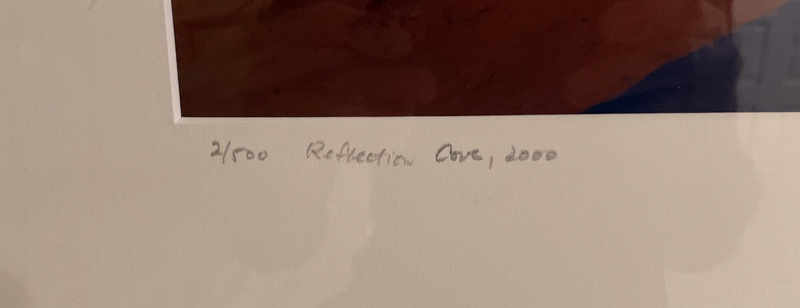 2/500 Reflection Cove, 2000